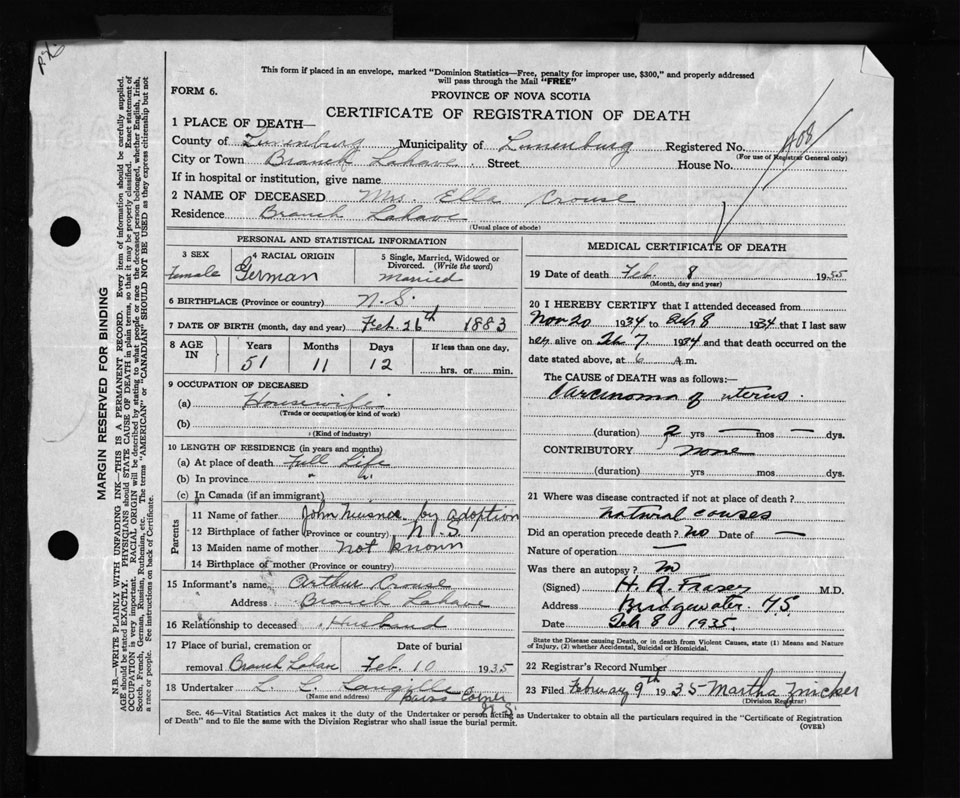 P.X.
This form if placed in an envelope, marked "Dominion Statistics—Free, penalty for improper use, $300," and properly addressed
will pass through the Mail "FREE"
FORM 6.
PROVINCE OF NOVA SCOTIA
CERTIFICATE OF REGISTRATION OF DEATH
1 PLACE OF DEATH—
County of Lunenburg Municipality of Lunenburg Registered No. 408
(For use of Registrar General only)
City or Town Branch Lahave Street House No.
If in hospital or institution, give name
2 NAME OF DECEASED Mrs. Ella Crouse
Residence Branch Lahave
(Usual place of abode)
PERSONAL AND STATISTICAL INFORMATION
3 SEX 4 RACIAL ORIGIN 5 Single, Married, Widowed or
Divorced. (Write the word)
Female German Married
6 BIRTHPLACE (Province or country) N.S.
7 DATE OF BIRTH (month, day and year) Feb. 26th 1883
8 AGE IN Years Months Days If less than one day,
51 11 12 hrs. or min.
9 OCCUPATION OF DECEASED
(a) Housewife
(Trade or occupation or kind of work)
(b)
(Kind of industry)
10 LENGTH OF RESIDENCE (in years and months)
(a) At place of death Full Life
(b) In province " "
(c) In Canada (if an immigrant)
Parents
11 Name of father John by adoption
12 Birthplace of father (Province or country) N.S.
13 Maiden name of mother Not known
14 Birthplace of mother (Province or country)
15 Informant's name Arthur Crouse
Address Branch Lahave
16 Relationship to deceased Husband
17 Place of burial, cremation or Date of burial
removal Branch Lahave Feb. 10 1935
18 Undertaker L. L. Langille
(Name and address) Corner
N.S.
MEDICAL CERTIFICATE OF DEATH
19 Date of death Feb. 8 19
(Month, day and year)
20 I HEREBY CERTIFY that I attended deceased from
Nov 20 1934 to Feb 8 1934 that I last saw
her alive on Feb 7 1934 and that death occurred on the
date stated above, at 6 A.m.
The CAUSE of DEATH was as follows:—
Carcinoma of uterus.
(duration) 2 yrs — mos — dys.
CONTRIBUTORY none
(duration) yrs mos dys.
21 Where was disease contracted if not at place of death?
natural causes
Did an operation precede death? no Date of —
Nature of operation —
Was there an autopsy? no
(Signed) H. A. Fraser M.D.
Address Bridgewater. NS
Date Feb 8 1935
State the Disease causing Death, or in death from Violent Causes, state (1) Means and Nature
of Injury, (2) whether Accidental, Suicidal or Homicidal.
22 Registrar's Record Number
23 Filed February 9th 1935 Martha Zwicker
(Division Registrar)
Sec. 46—Vital Statistics Act makes it the duty of the Undertaker or person acting as Undertaker to obtain all the particulars required in the "Certificate of Registration
of Death" and to file the same with the Division Registrar who shall issue the burial permit.
(OVER)
MARGIN RESERVED FOR BINDING
N.B.—WRITE PLAINLY WITH UNFADING INK—THIS IS A PERMANENT RECORD. Every item of information should be carefully supplied.
AGE should be stated EXACTLY. PHYSICIANS should STATE CAUSE OF DEATH in plain terms, so that it may be properly classified. Exact statement of
OCCUPATION is very important. RACIAL ORIGIN will be described by stating to what people or race the deceased person belonged, whether English, Irish,
Scotch, French, German, Russian, Ruthenian, etc. The terms "AMERICAN" or "CANADIAN" SHOULD NOT BE USED as they express citizenship but not
a race or people. See instructions on back of Certificate.